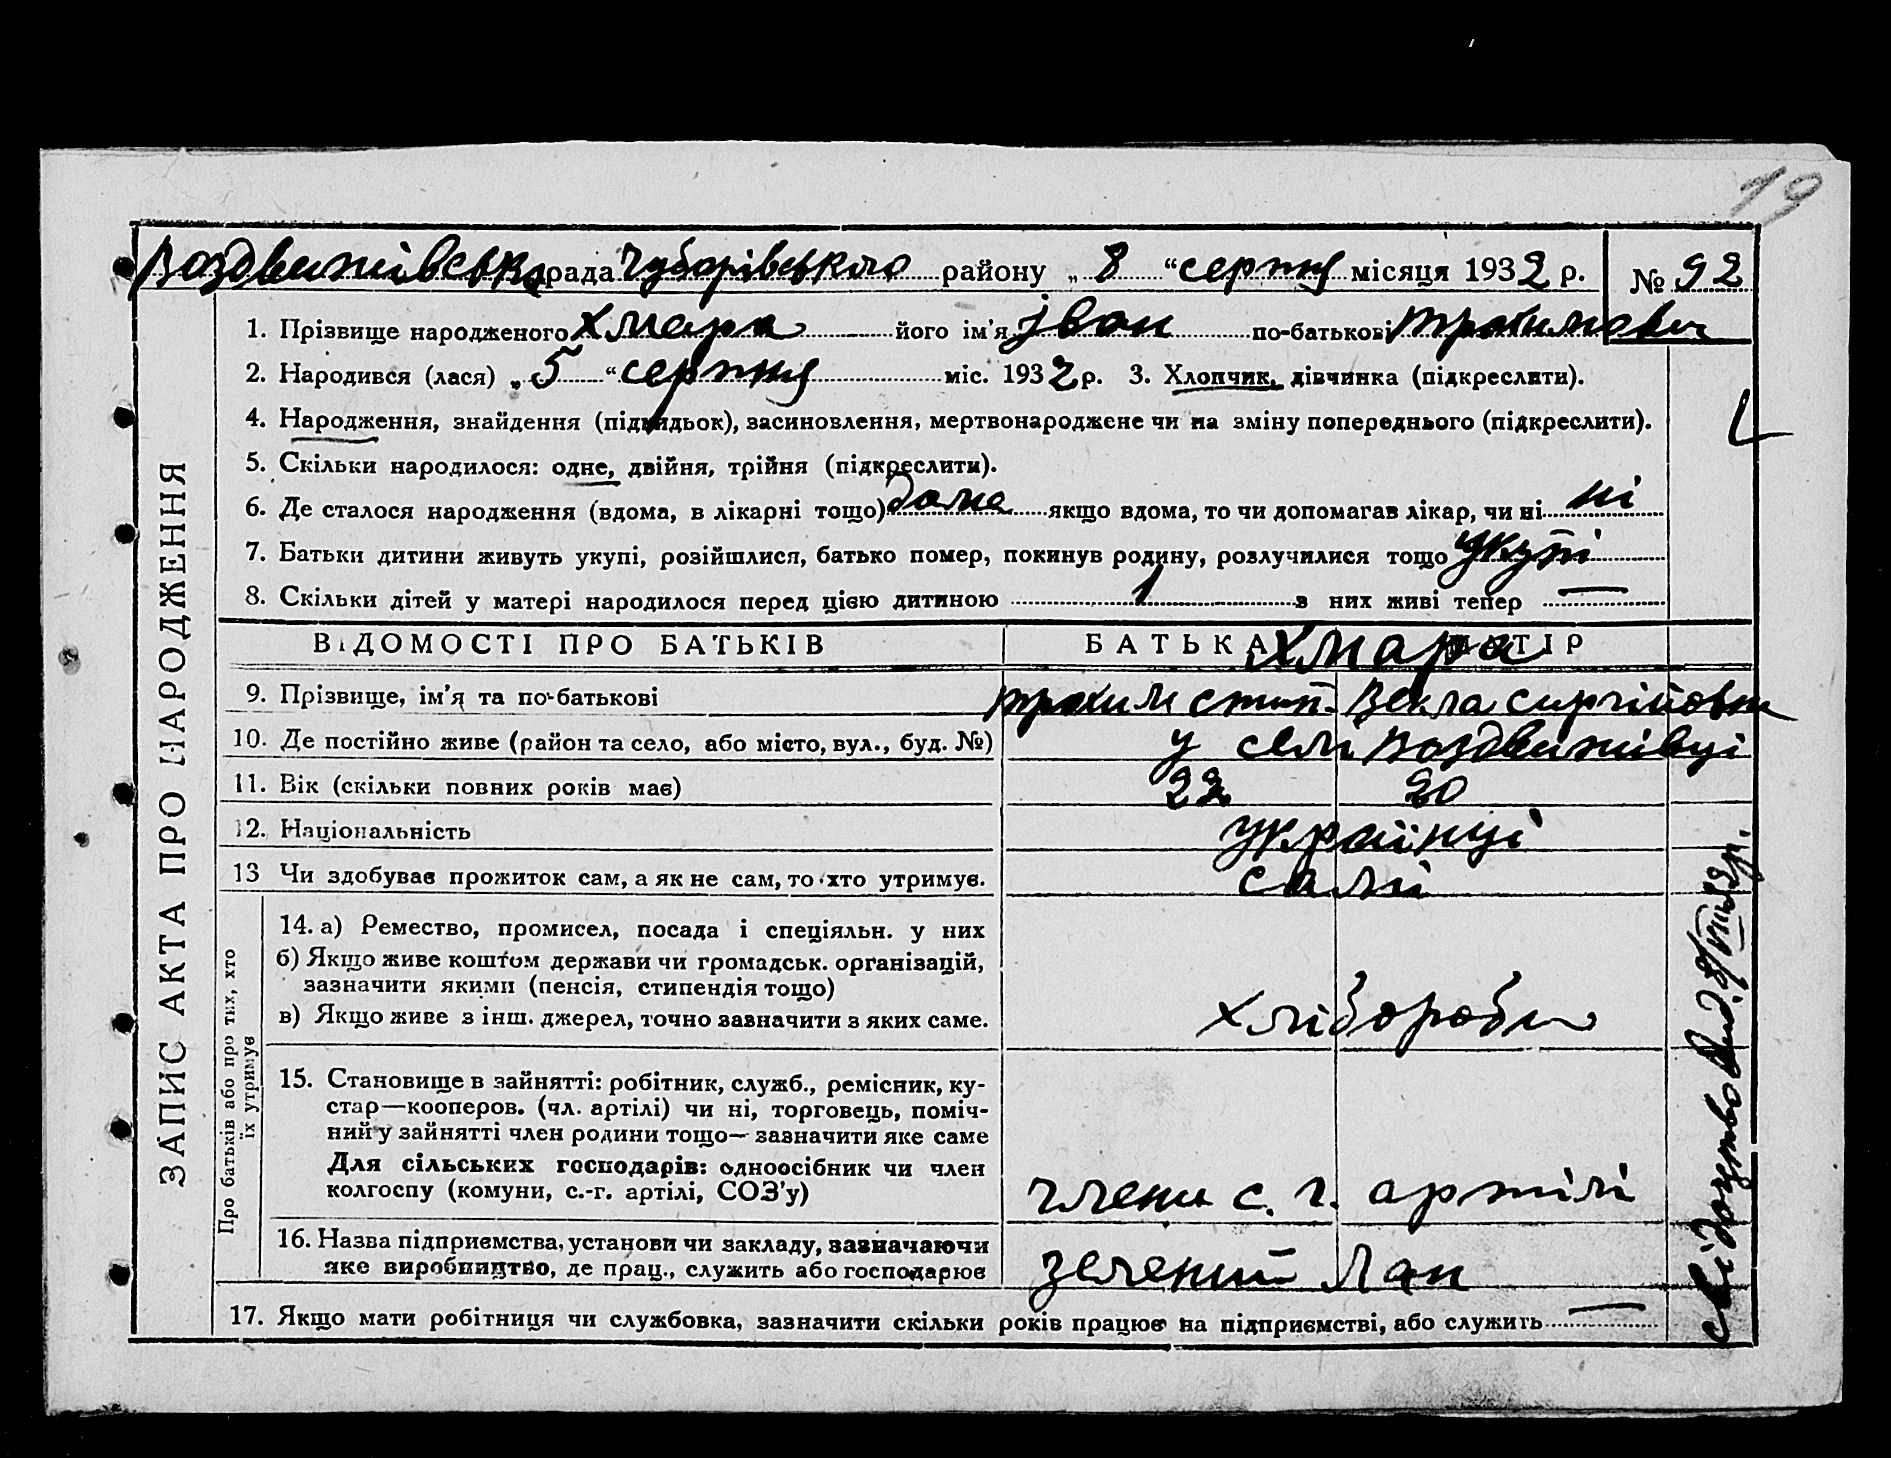 19
Воздвижівська рада Чубарівського району „ 8 “ серпня місяця 1932 р. № 92
1. Прізвище народженого Хмара його ім’я Іван по-батькові Трохимович
2. Народився (лася) „ 5 “ серпня міс. 1932 р. 3. Хлопчик, дівчинка (підкреслити).
4. Народження, знайдення (підкидьок), засиновлення, мертвонароджене чи на зміну попереднього (підкреслити).
5. Скільки народилося: одне, двійня, трійня (підкреслити).
6. Де сталося народження (вдома, в лікарні тощо) дома якщо вдома, то чи допомагав лікар, чи ні ні
7. Батьки дитини живуть укупі, розійшлися, батько помер, покинув родину, розлучилися тощо укупі
8. Скільки дітей у матері народилося перед цією дитиною 1 з них живі тепер —
ЗАПИС АКТА ПРО НАРОДЖЕННЯ
ВІДОМОСТІ ПРО БАТЬКІВ БАТЬКА МАТІР
Хмара
9. Прізвище, ім’я та по-батькові Трохим Стип. Векла Сиргійовна
10. Де постійно живе (район та село, або місто, вул., буд. №) у селі Воздвижівці
11. Вік (скільки повних років має) 22 20
12. Національність українці
13 Чи здобуває прожиток сам, а як не сам, то хто утримує. самі
Про батьків або про тих, хто
їх утримує
14. а) Ремество, промисел, посада і спеціяльн. у них
б) Якщо живе коштом держави чи громадськ. організацій,
зазначити якими (пенсія, стипендія тощо)
в) Якщо живе з інш. джерел, точно зазначити з яких саме.
хлібороби
15. Становище в зайнятті: робітник, служб., ремісник, ку-
стар—кооперов. (чл. артілі) чи ні, торговець, поміч-
ний у зайнятті член родини тощо— зазначити яке саме
Для сільських господарів: одноосібник чи член
колгоспу (комуни, с.-г. артілі, СОЗ’у)
члени с. г. артілі
16. Назва підприємства, установи чи закладу, зазначаючи
яке виробництво, де прац., служить або господарює
зелений Лан
17. Якщо мати робітниця чи службовка, зазначити скільки років працює на підприємстві, або служить —
свідоцтво вид. 8/VIII 32р.